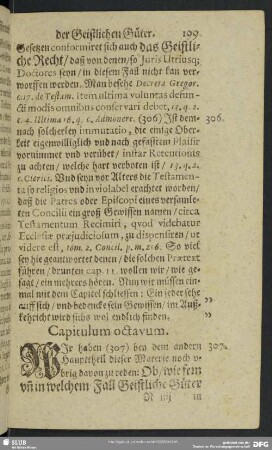 der Geistlichen Güter. 109
Gesetzen conformiret sich auch das Geistli-
che Recht / daß von denen / so Juris Utriusq;
Doctores seyn / in diesem Fall nicht kan ver-
worffen werden. Man besehe Decreta Gregor.
c.17. de Testam. item ultima voluntas defun-
cti modis omnibus conservari debet, 13. q. 2.
c. 4. Ultima 16. q. 1. Admonere. (306) Ist dem- 306.
nach solcherley immutatio, die einige Ober-
keit eigenwilliglich und nach gefasstem Plaisir
vornimmet und verübet / instar Retentionis
zu achten / welche hart verboten ist / 13. q. 2.
c. Clericis. Und seyn vor Alters die Testamen-
ta so religios und inviolabel erachtet worden /
daß die Patres oder Episcopi eines versamle-
ten Concilii ein groß Gewissen namen / circa
Testamentum Recimiri, quod videbatur
Ecclesiæ præjudiciosum, zu dispensiren / ut
videre est, tom. 2. Concil. p. m. 216. So viel
sey hie geantwortet denen / die solchen Prætext
führen / drunten cap. 11. wollen wir / wie ge-
sagt / ein mehrers hören. Nun wir müssen ein-
mal mit dem Capitel schliessen: Ein jeder sehe
auff sich / und bedencke sein Gewissen / im Auß- "
kehricht wird sichs wol endlich finden. "
Capitulum octavum.
WIr haben (307) bey dem andern 307.
Haupttheil dieser Materie noch ü-
brig davon zu reden: Ob / wie fern
uñ in welchem Fall Geistliche Güter
N iij in
SLUB
DFG